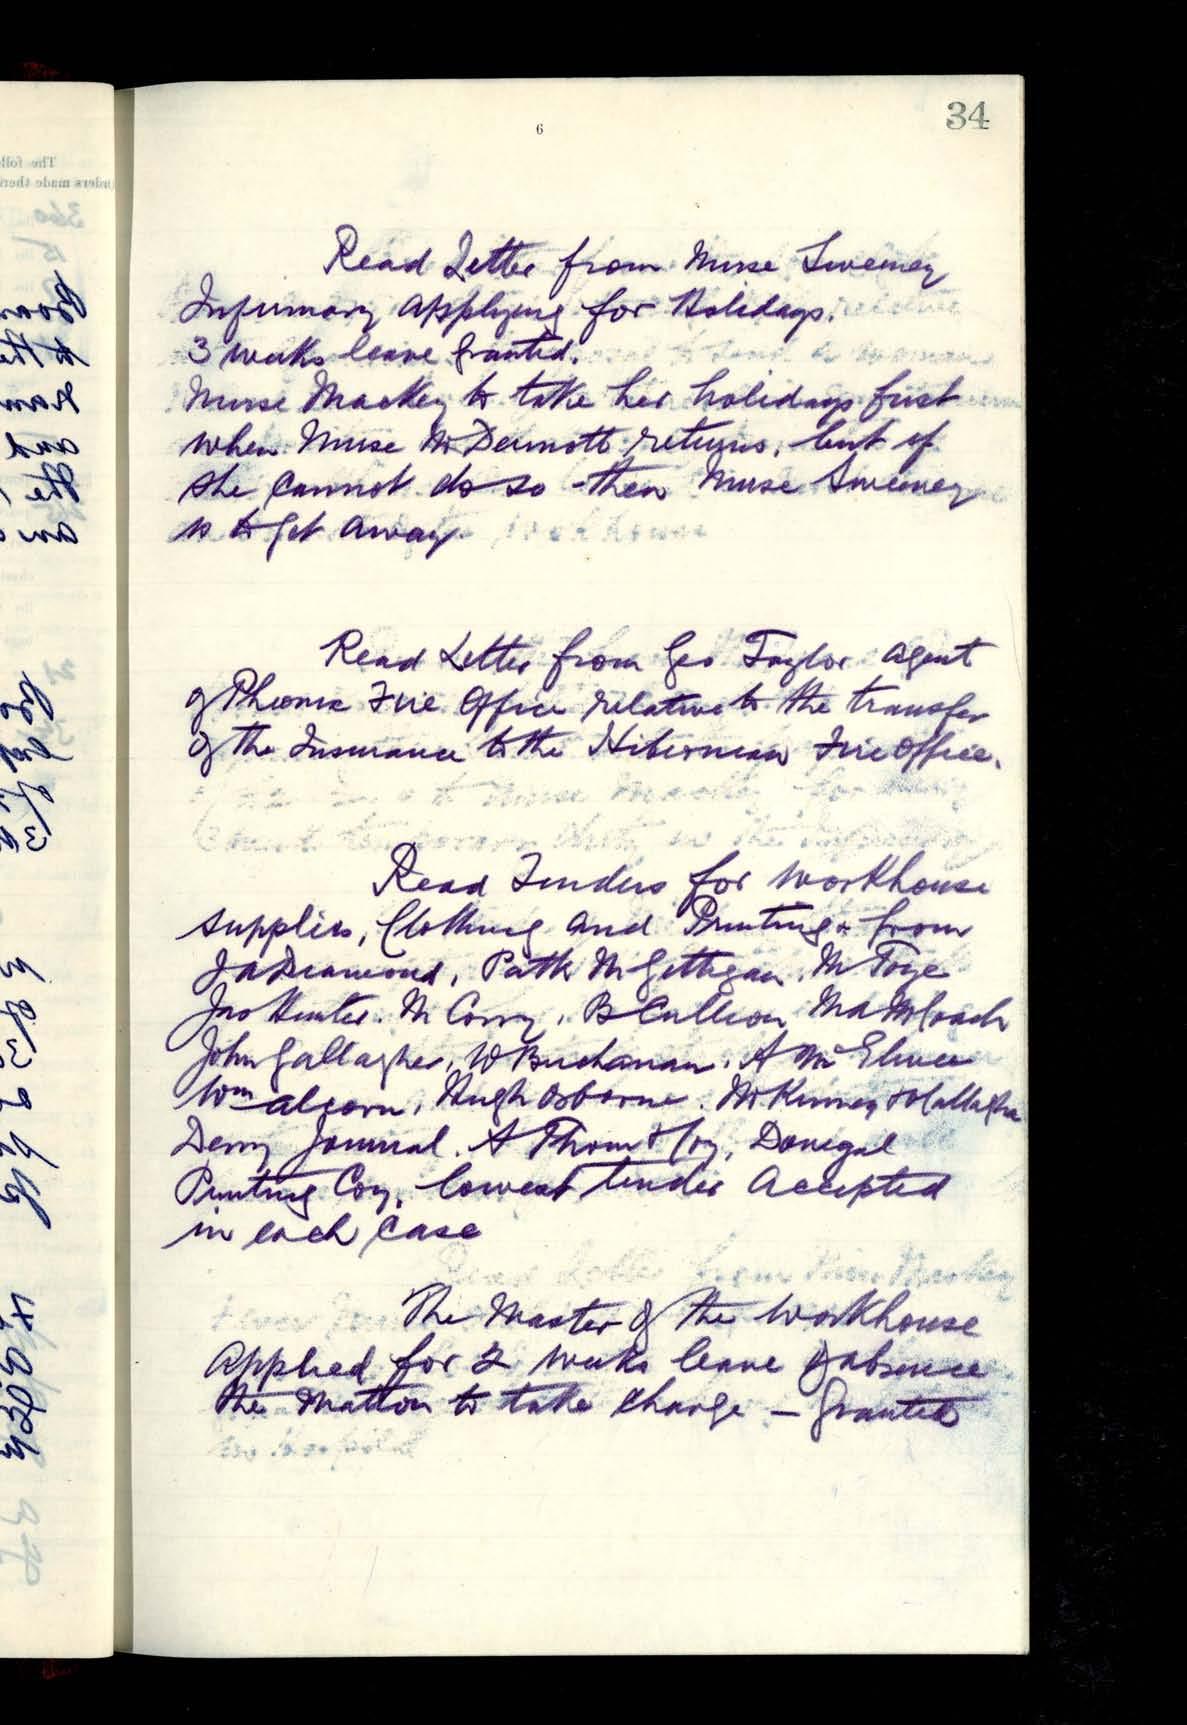 34
6
Read Letter from Nurse Sweeney
Infirmary applying for Holidays.
3 weeks leave granted.
Nurse Mackey to take her holidays first
when Nurse McDermott returns, but if
she cannot do so - then Nurse Sweeney
is to get away.
Read Letter from Geo Taylor agent
of Phoenix Fire Office relative to the transfer
of the Insurance to the Hibernian Fire Office.
Read Tenders for Workhouse
supplies, Clothing and Printing from
J A Diamond, Patk McGettigan, M Foye
Jno Hunter. M Corry, B Cullion,
John Gallagher, W Buchanan, A McElwee
Wm alcorn, Hugh Osborne. McKinney & OCallaghan
Derry Journal. A Thom & Coy, Donegal
Printing Coy, lowest tender accepted
in each case
The Master of the Workhouse
applied for 2 weeks leave of absence
the Matron to take charge - granted